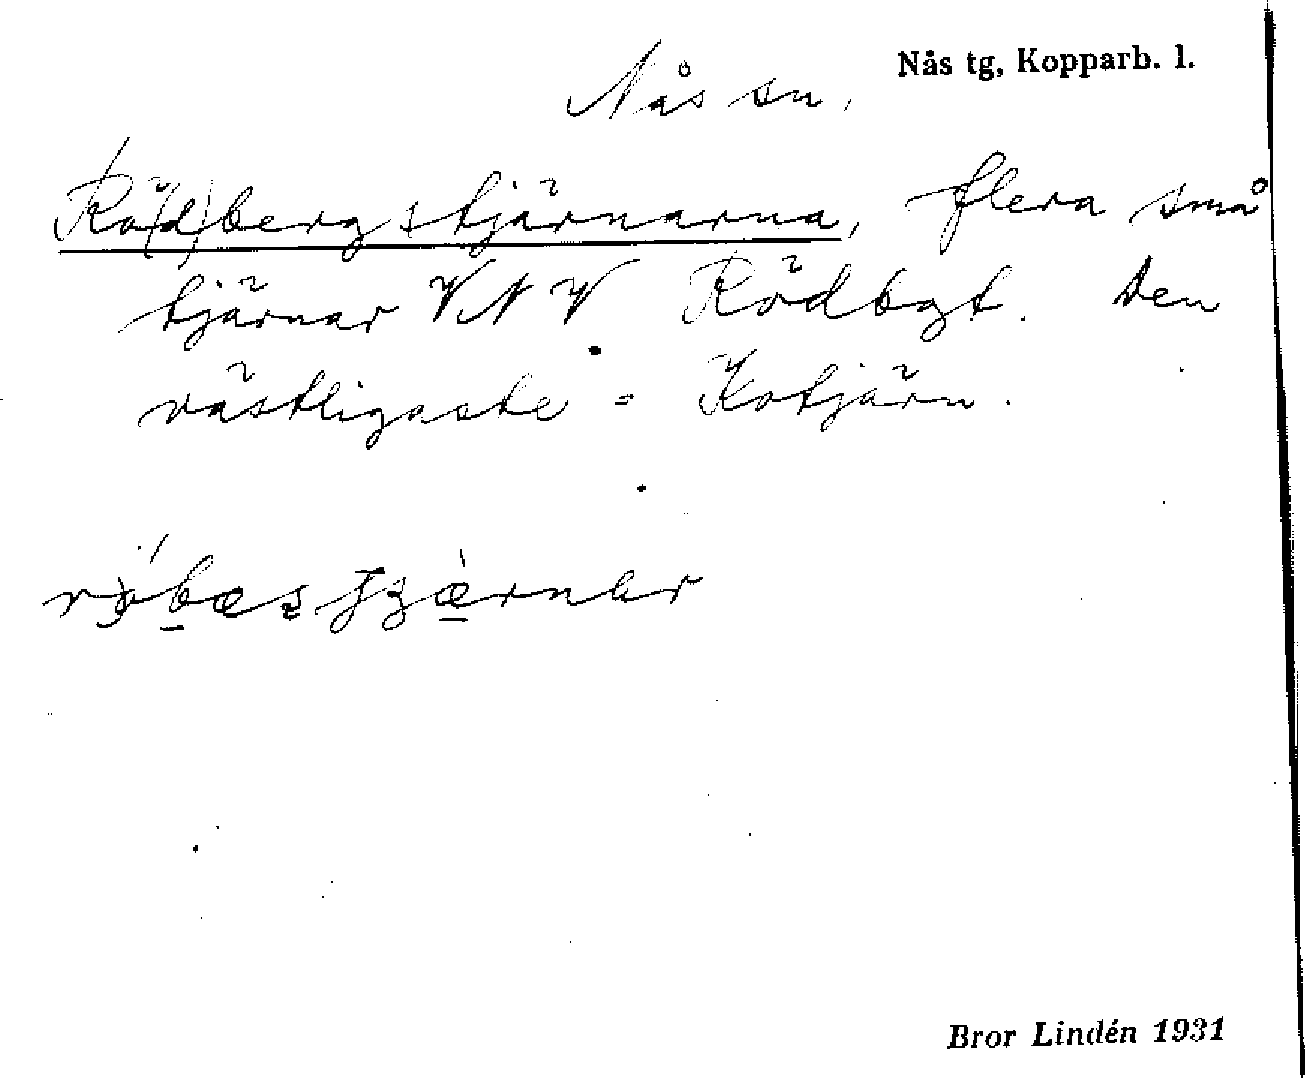 Nås tg, Kopparb. l.
Nås sn.
Rö(d)bergstjärnarna, flera små
tjärnar VNV Rödbgt. Den
västligaste = Kotjärn.
Bror Lindén 1931